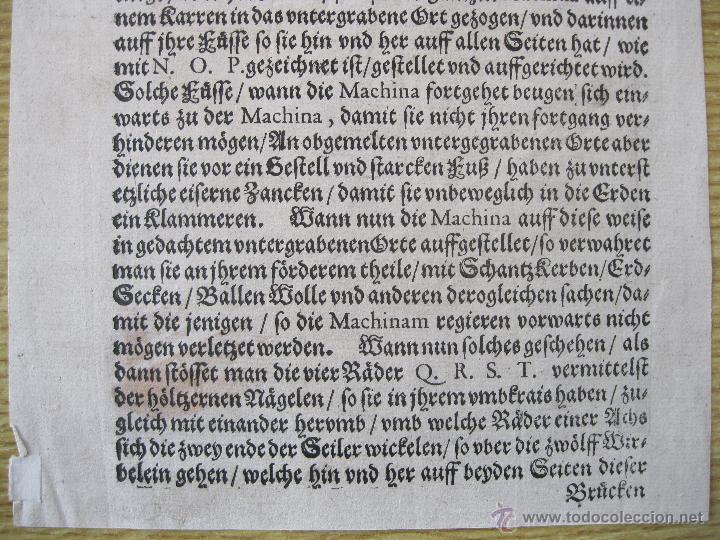 nem Karren in das vntergrabene Ort gezogen/vnd darinnen
auff jhre Füsse so sie hin vnd her auff allen Seiten hat/ wie
mit N. O. P. gezeichnet ist/gestellet vnd auffgerichtet wird.
Solche Füsse/ wann die Machina fortgehet beugen sich ein-
warts zu der Machina, damit sie nicht jhren fortgang ver-
hinderen mögen/An obgemelten vntergegrabenen Orte aber
dienen sie vor ein Gestell vnd starcken Fuß/ haben zu vnterst
etzliche eiserne Zancken/ damit sie vnbeweglich in die Erden
ein Klammeren. Wann nun die Machina auff diese weise
in gedachtem vntergrabenen Orte auffgestellet/so verwahret
man sie an jhrem förderem theile/mit SchantzKerben/Erd-
Secken/ Ballen Wolle vnd anderen derogleichen sachen/da-
mit die jenigen/ so die Machinam regieren vorwarts nicht
mögen verletzet werden. Wann nun solches geschehen/ als
dann stösset man die vier Räder Q. R. S. T. vermittelst
der höltzernen Nägelen/ so sie in jhrem vmbkrais haben/ zu-
gleich mit einander hervmb/ vmb welche Räder einer Achs
sich die zwey ende der Seiler wickelen/ so vber die zwölff Wir-
belein gehen/ welche hin vnd her auff beyden Seiten dieser
Brücken
www.todocoleccion.net